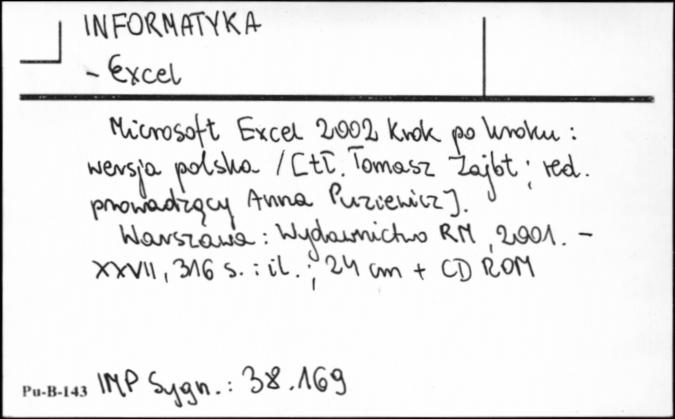 INFORMATYKA
- Excel
Microsoft Excel 2002 krok po kroku :
wersja polska / [tł. Tomasz Zajbt ; red.
prowadzący Anna Puziewicz].
Warszawa : Wydawnictwo RM, 2001. -
XXVII, 316 s. : il. ; 24 cm + CD ROM
Pu-B-143 IMP Sygn.: 38.169